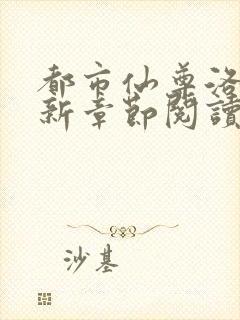 都市仙尊洛
新章節閱讀
沙基